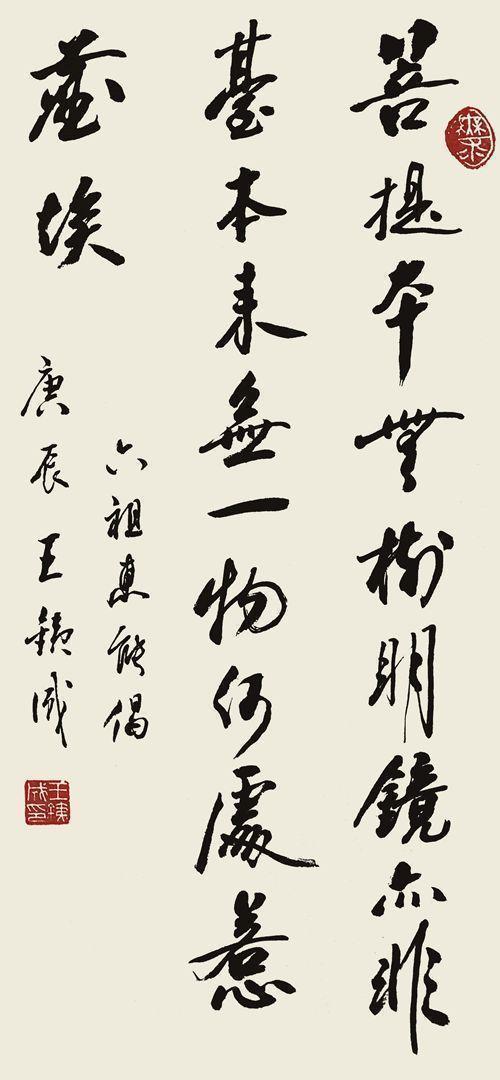 菩提本無樹明鏡亦非
臺本来無一物何處惹
塵埃
六祖惠能偈
庚辰王鐵成
王鐵成印